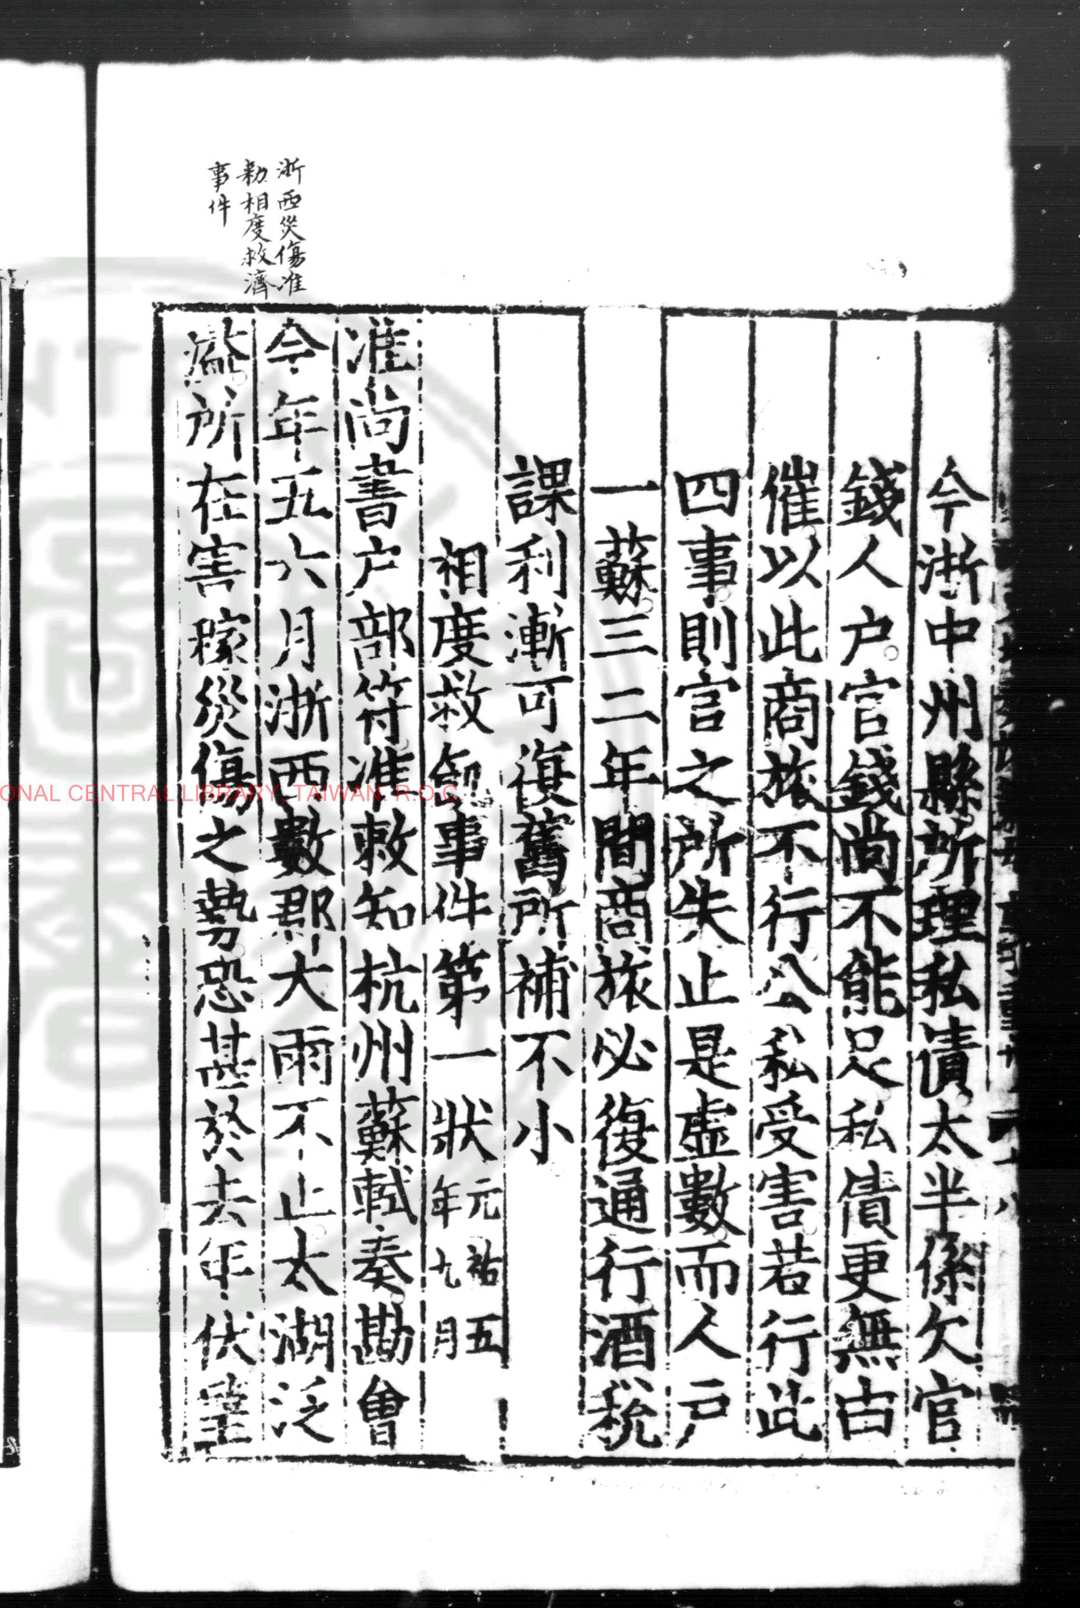 今浙中州縣所理私債太半係欠官
錢人户官錢尚不能足私債更無由
催以此商旅不行公私受害若行此
四事則官之所失止是虛數而人户
一蘇三二年間商旅必復通行酒稅
課利漸可復舊所補不小
相度救卹事件第一狀元祐五年九月
准尚書户部符准敕知杭州蘇軾奏勘會
今年五六月浙西數郡大雨不止太湖泛
溢所在害稼災傷之勢恐甚於去年伏望
浙西災傷准
勑相度救濟
事件
NATIONAL CENTRAL LIBRARY, TAIWAN. R.O.C